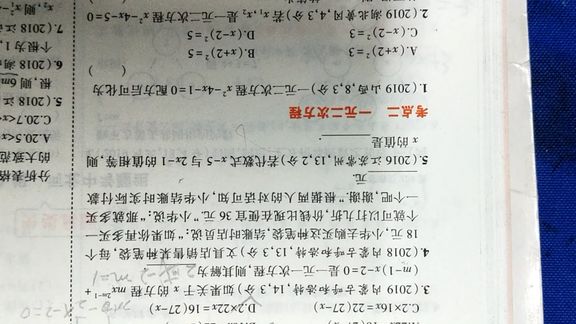 C.2×16x=22(27-x)
D.2×22x=16(27-x)
3. (2018 内蒙古呼和浩特,14,3 分) 如果关于 x 的方程 mx²ᵐ⁻¹+
(m-1)x-2=0 是一元一次方程,则其解为
4. (2018 内蒙古呼和浩特,13,3 分) 文具店销售某种笔袋,每个
18 元,小华去购买这种笔袋,结账时店员说:“如果你再多买一
个就可以打九折,价钱比现在便宜 36 元.”小华说:“那就多买
一个吧,谢谢.”根据两人的对话可知,小华结账时实际付款
元.
5. (2016 江苏常州,13,2 分) 若代数式 x-5 与 2x-1 的值相等,则
x 的值是
考点二 一元二次方程
1. (2019 山西,8,3 分) 一元二次方程 x²-4x-1=0 配方后可化为
( )
A.(x+2)²=3
B.(x+2)²=5
C.(x-2)²=3
D.(x-2)²=5
2. (2019 湖北黄冈,4,3 分) 若 x₁,x₂ 是一元二次方程 x²-4x-5=0
分析表格
的大致范
A.20.5<
C.20.7<
5. (2018 江
根,则
6. (2018 湖
个根为 1,
7. (2018 江
m=1